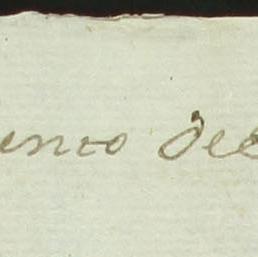 ento del